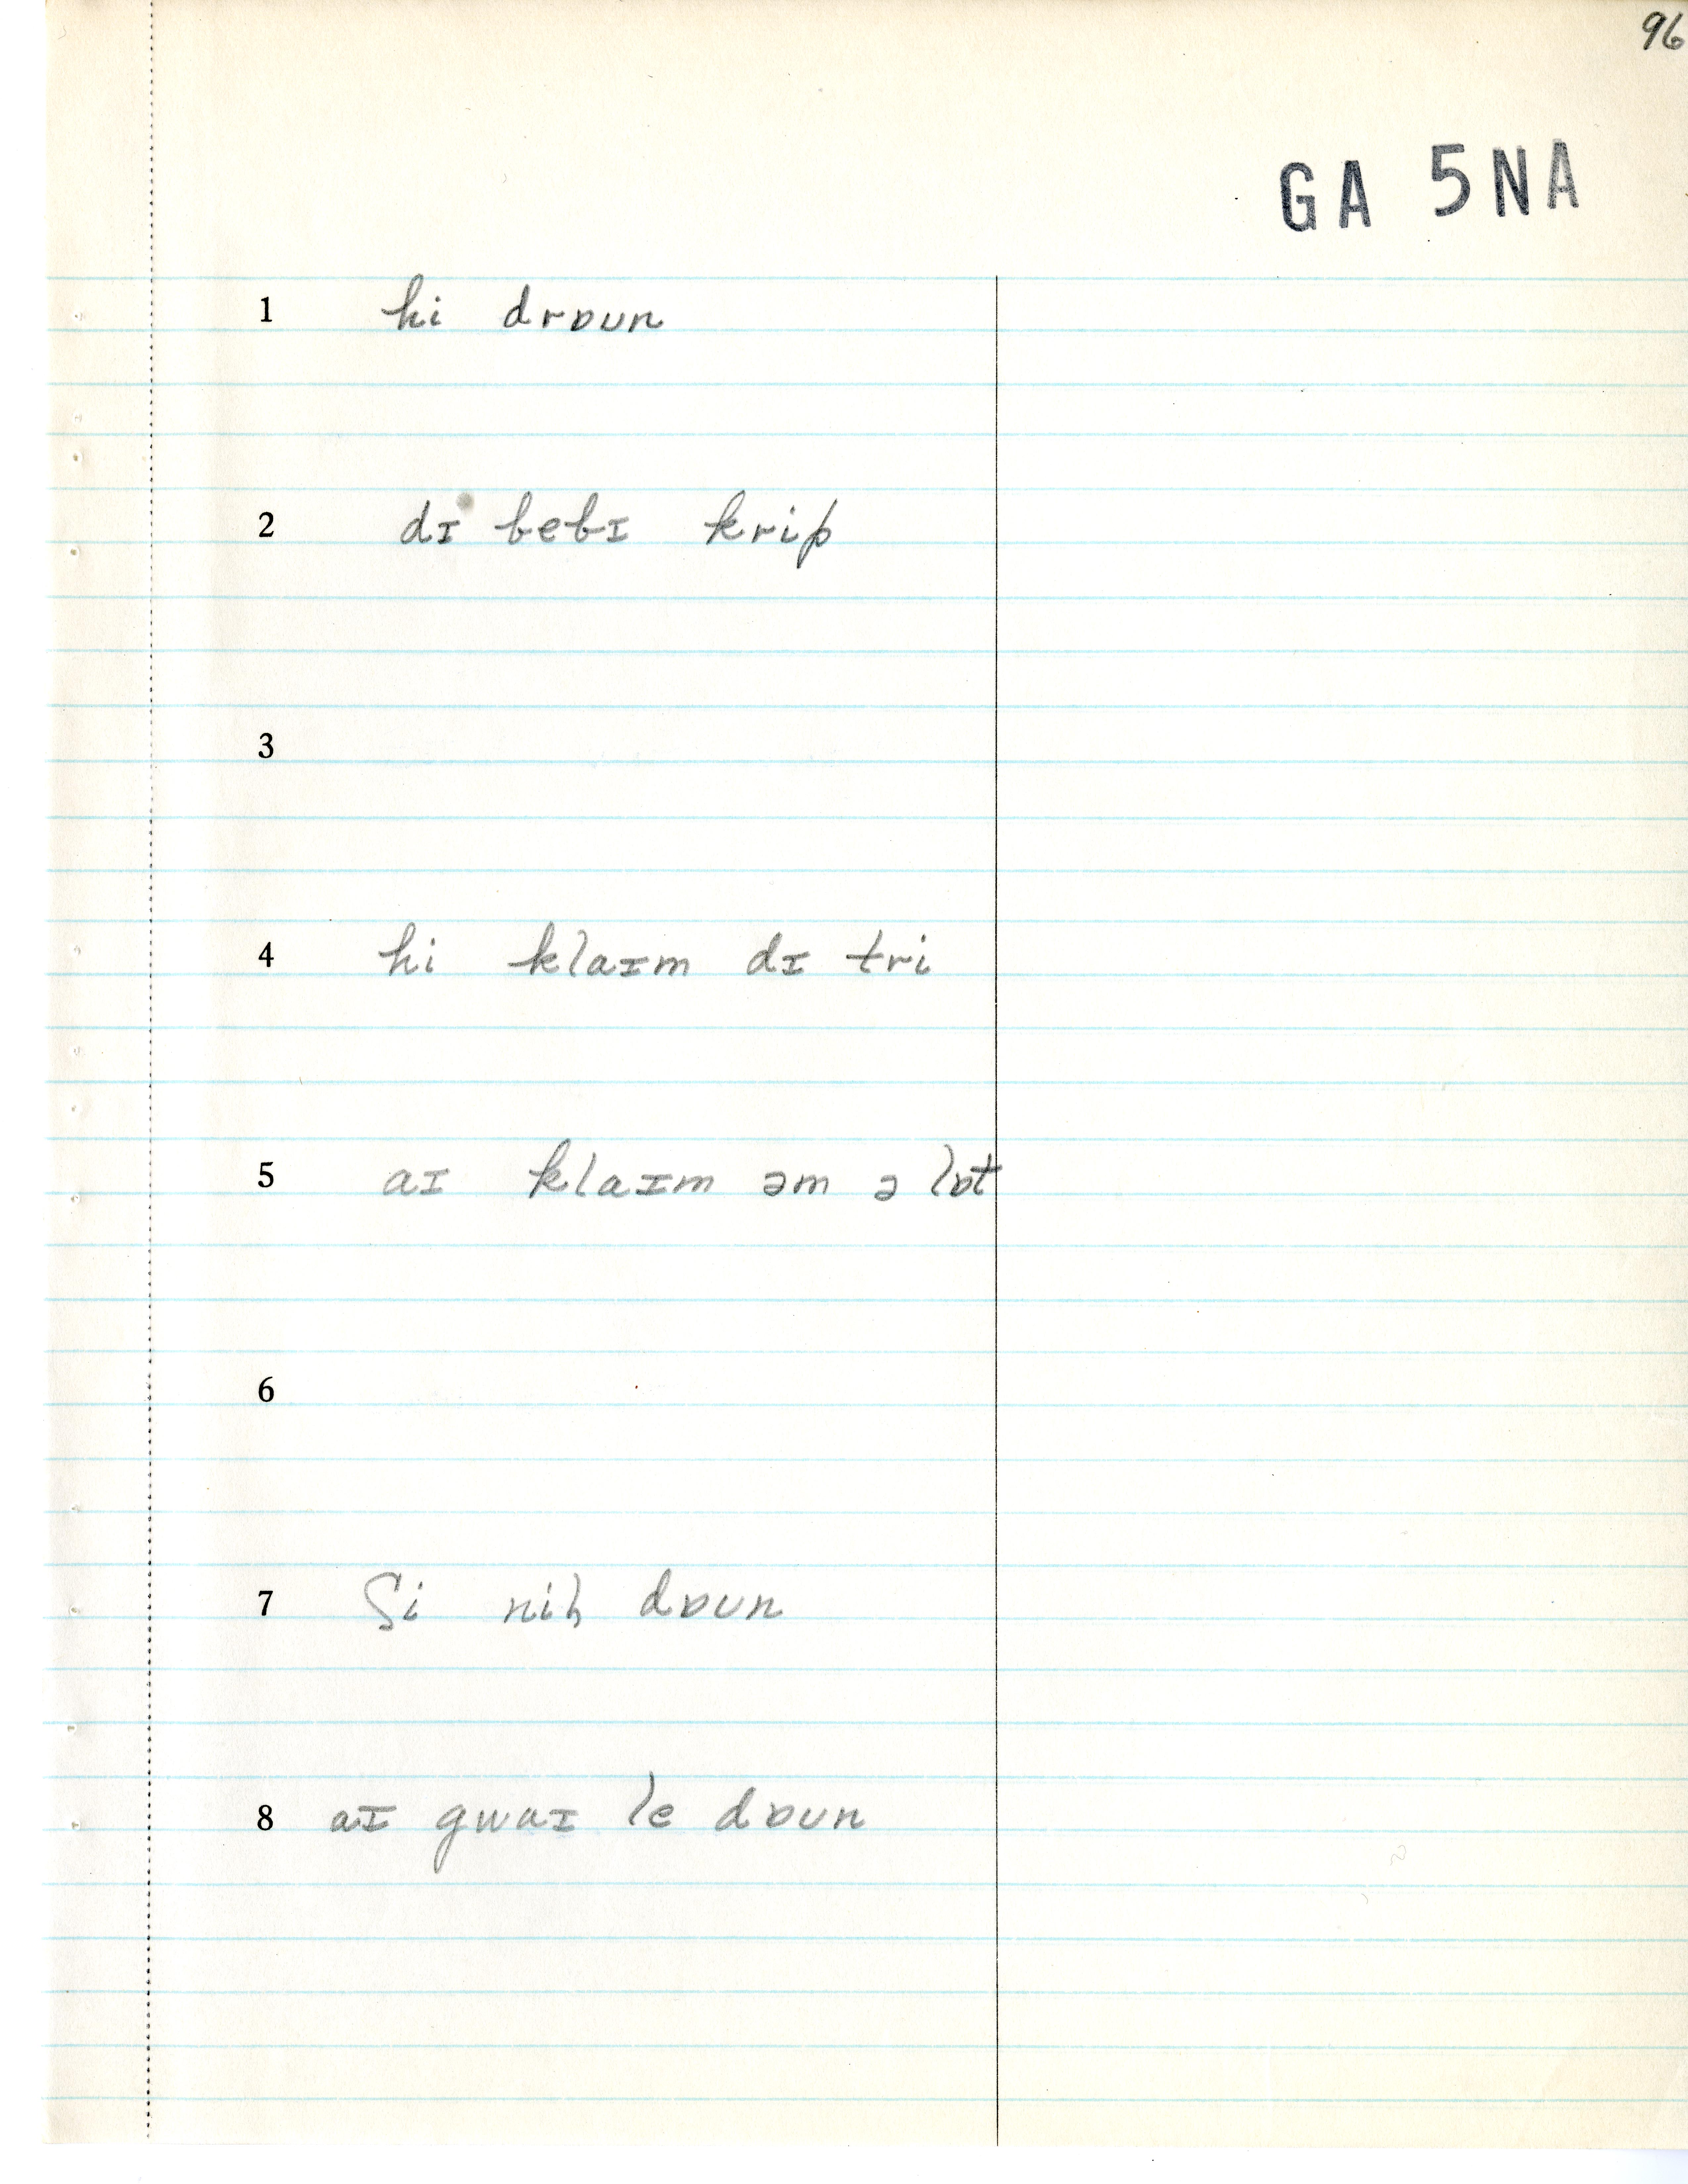 96
GA 5NA
1 hi drɒun
2 dɪ bebɪ krip
3
4 hi klaɪm dɪ tri
5 aɪ klaɪm əm ə lɒt
6
7 ʃi nil dɒun
8 aɪ gwaɪ le dɒun